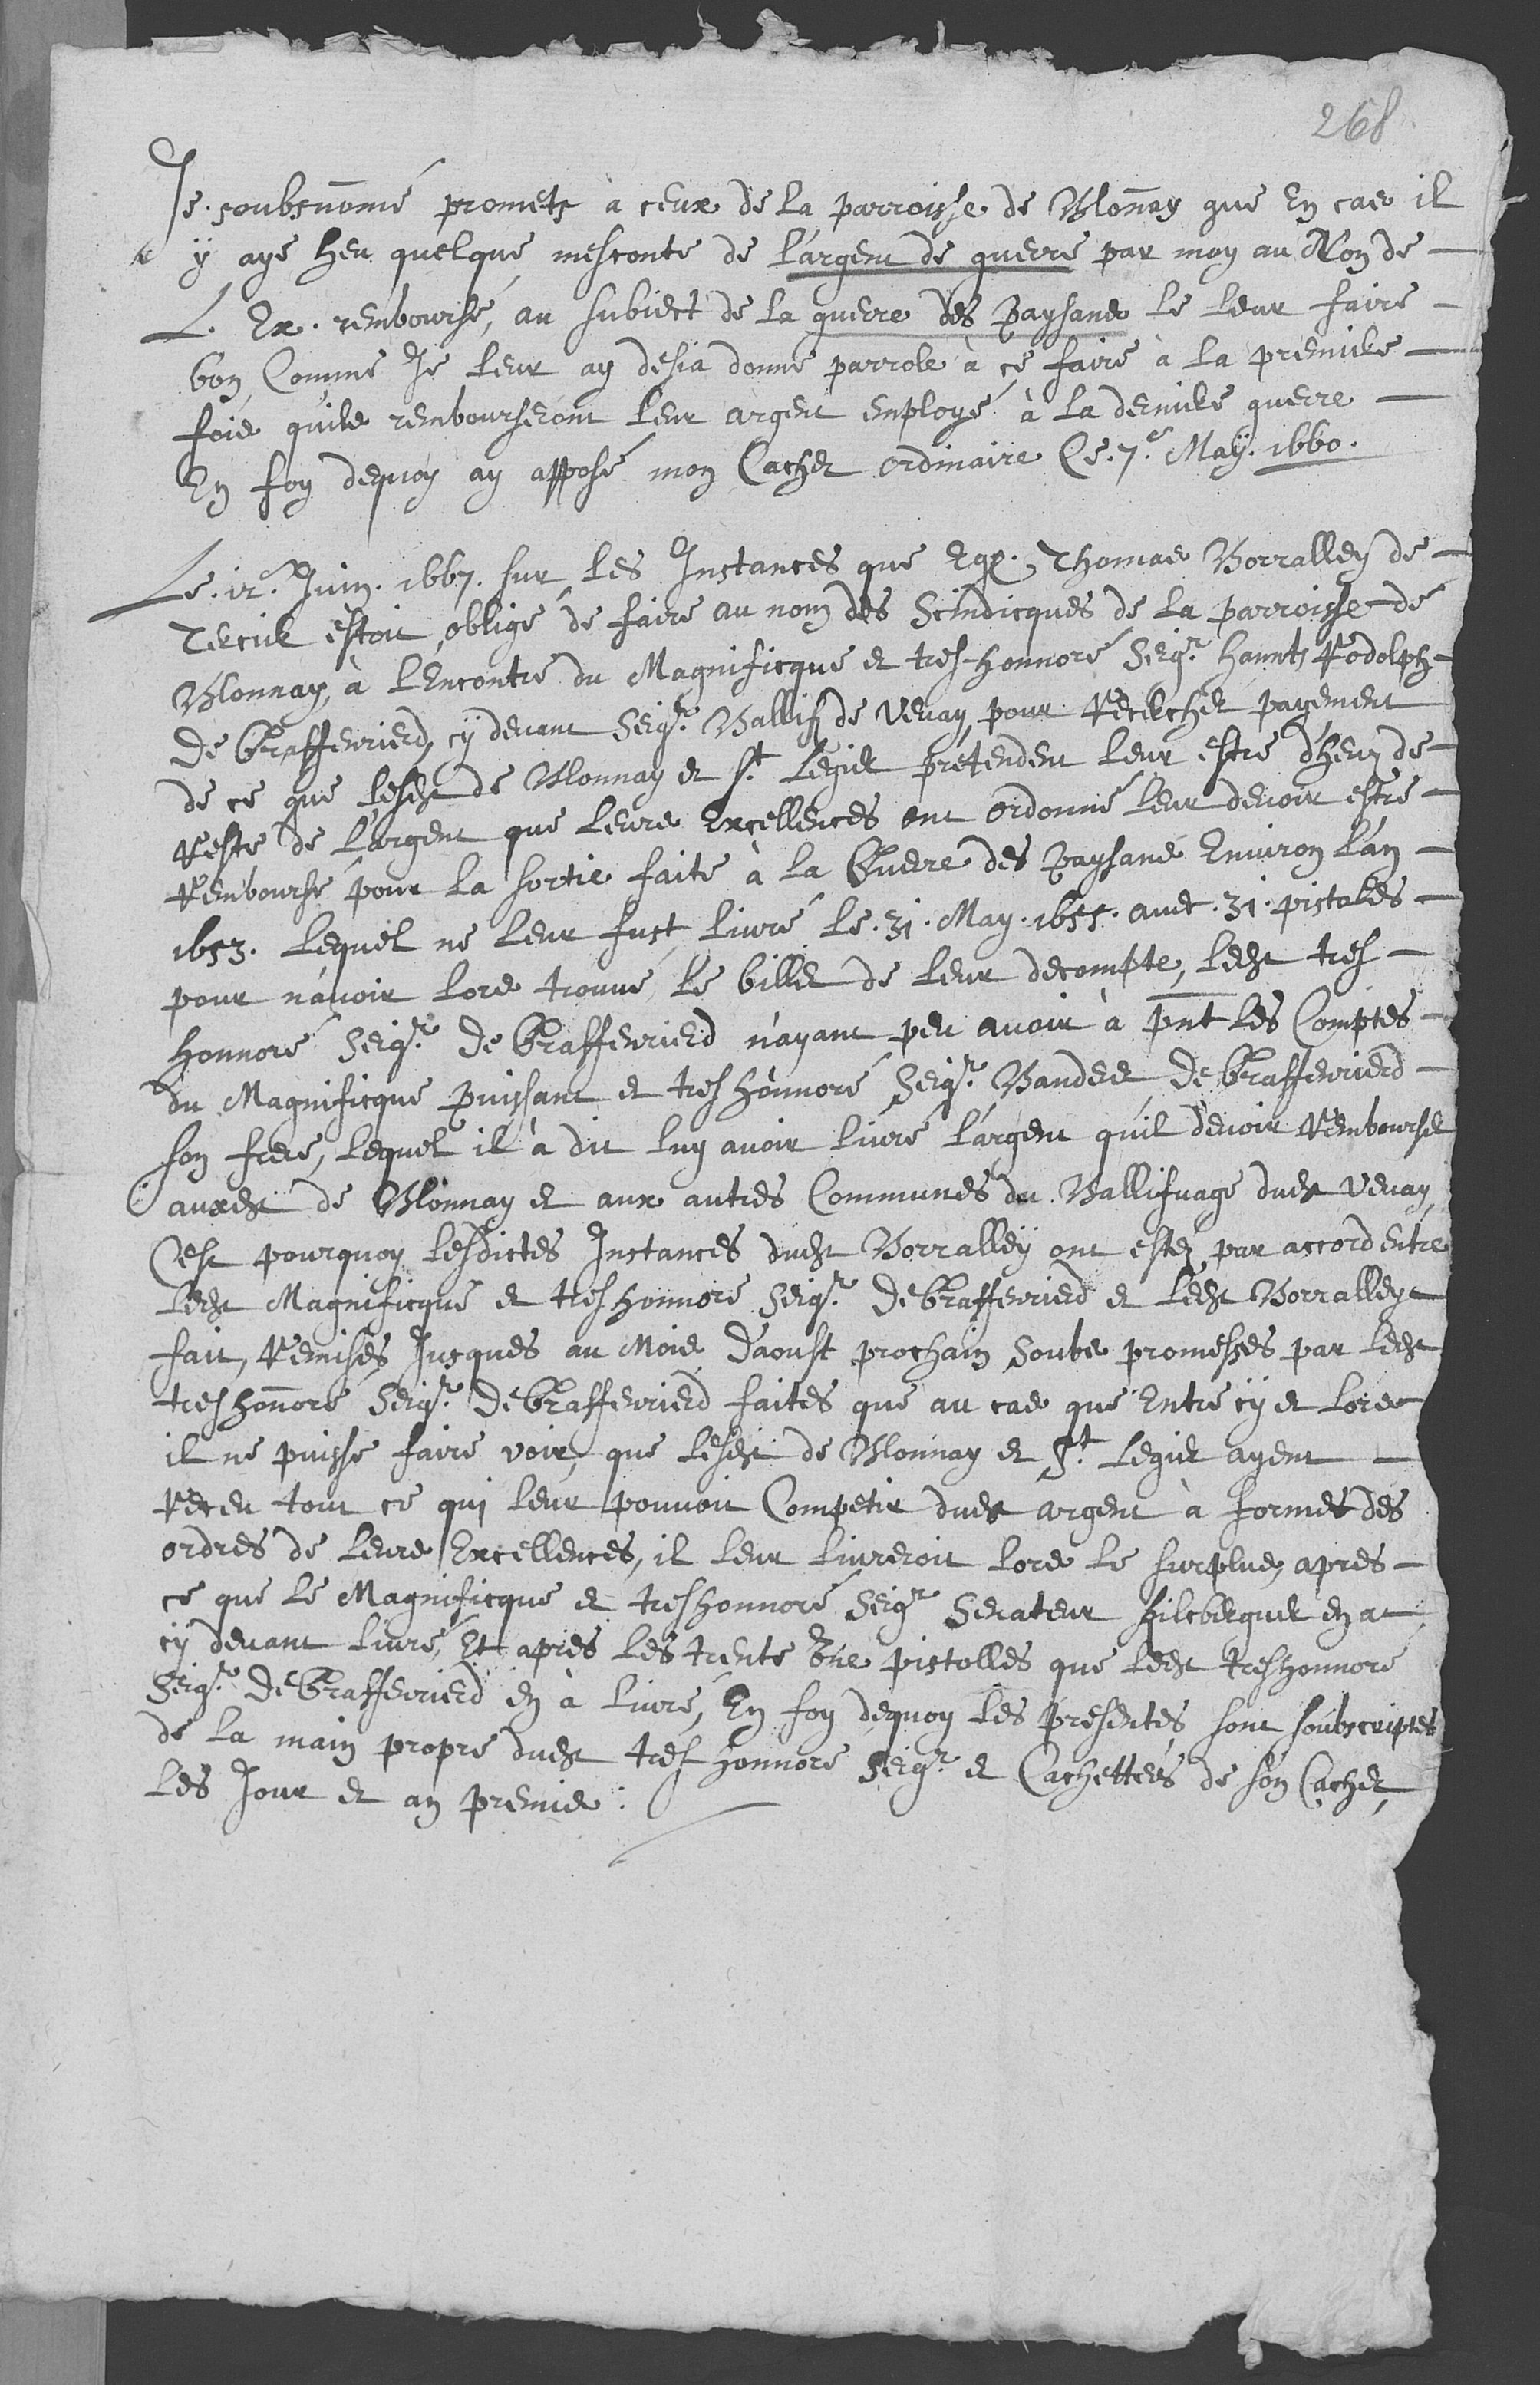 268
Je soubsnom̄é promets à ceux de la parroisse de Blon̄ay que En cas il
y aye heu quelque mesconte de l'argent de guerre par moy au Nom de
L. Ex. remboursé, au subiect de la guerre des paysans le leur faire
bon, Comme Je leur ay desia donné parrole à ce faire à la premiere
fois quils rembourseront leur argent employé à la derniere guerre
En foy dequoy ay apposé mon Cachet ordinaire Ce. 7.e Maÿ. 1660.
Le. 12.e Juin. 1667. sur les Instances que Eg. Thomas Borralley de
Tercier estoit obligé de faire au nom des Scindicques de la parroisse de
Blonnay, à lEncontre du Magnificque et tres-honnoré Seigr. Hannts Rodolph
De Graffenrierd, cÿ devant Seigr. Ballif de Vevay, pour Rechercher payement
de ce que lesdt de Blonnay et St. Legier prétendent leur estre dheuz de
Reste de l'argent que leurs Excellences ont ordonné leur devoir estre
Remboursé pour la sortie faite à la Guerre des Paysans Environ l'an
1653. lequel ne leur fust livré le. 31. May. 1655. avec. 31. pistoles
pour n'avoir lors trouvé le billet de leur decompte, ledt tres
honnoré Seigr. De Graffenrierd n'ayant peu avoir à pn̄t les Comptes
du Magnificque puissant et tres honnoré Seigr. Banderet De Graffenrierd
son frere, lequel il à dit luy avoir livré l'argent qu'il devoit Rembourser
auxdt de Blonnay et aux autres Communes du Ballifvage dudt Vevay,
C'est pourquoy lesdictes Instances dudt Borralleÿ ont estez par accord entre
ledt Magnificque et tres honnoré Seigr. De Graffenrierd et ledt Borralley
fait, Remises, Jusques au Mois d'aoust prochain soubs promesses par ledt
tres hon̄oré Seigr. De Graffenrierd faites que au cas que Entre cÿ et lors
il ne puisse faire voir, que lesdt de Blonnay et St. Legier ayent
Receu tout ce qui leur pouvoit Competir dudt argent à forme des
ordres de leurs Excellences, il leur livreroit lors le surplus, apres
ce que le Magnificque et tres honnoré Seigr Senateur en at
cÿ devant livré, Et apres les trente Une pistolles que ledt tres honnoré
Seigr. De Graffenrierd en à livré, En foy dequoy les presentes sont soubscriptes
de la main propre dudt tres honnoré Seigr. et Cachettées de son Cachet,
les Jour et an premis.